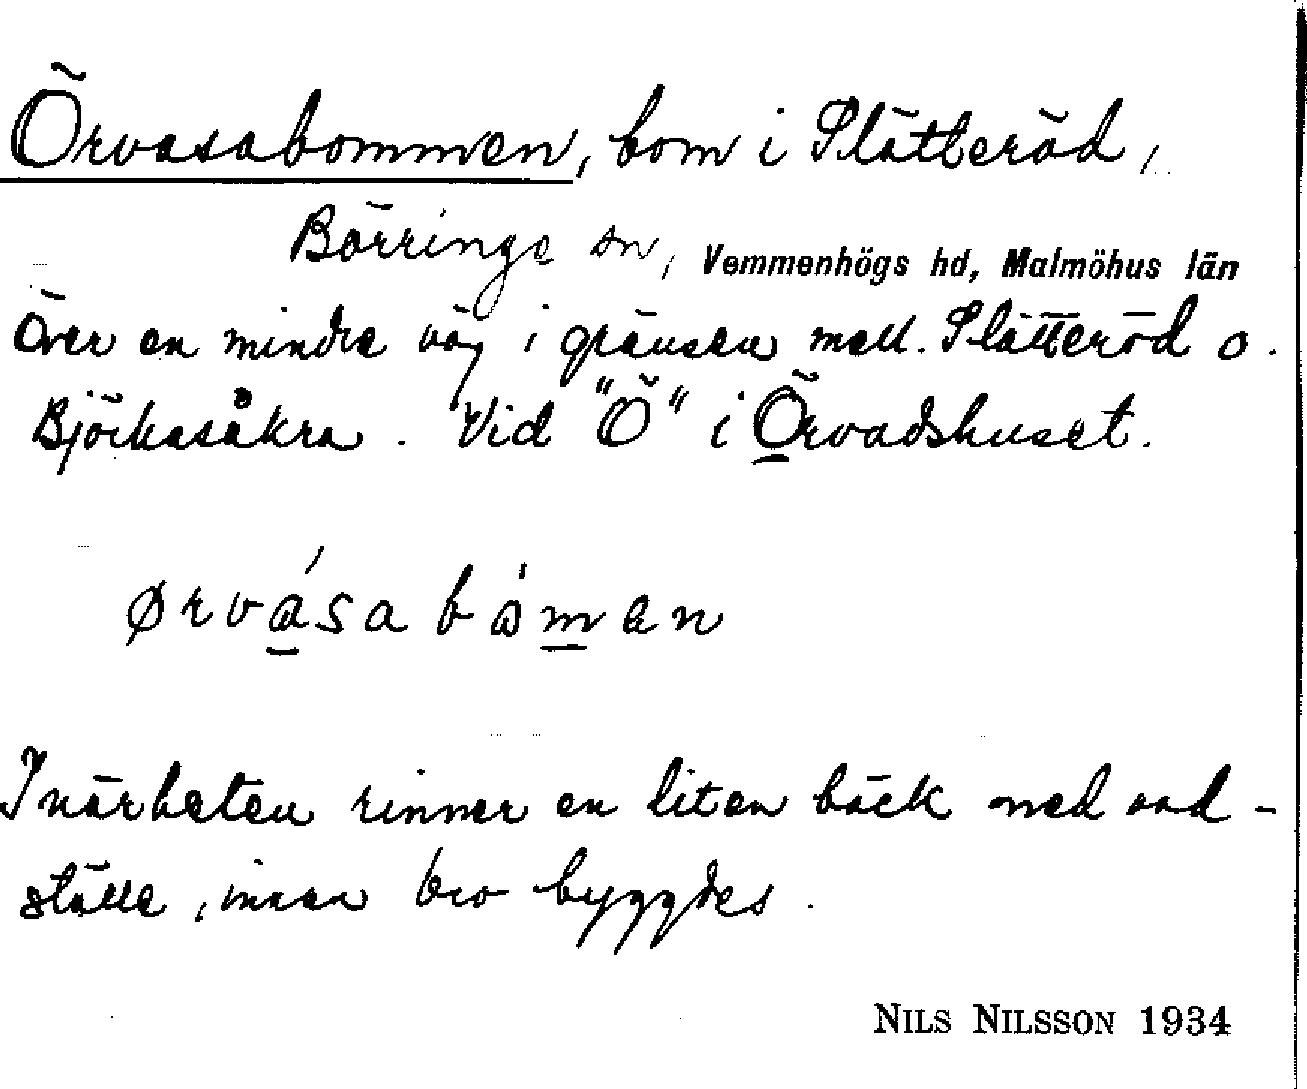 Örvasabommen, bom i Slätteröd,
Börringe sn, Vemmenhögs hd, Malmöhus län
Över en mindre väg i gränsen mell. Slätteröd o.
Björkasåkra. Vid "Ö" i Örvadshuset.
ørvása bòmen
I närheten rinner en liten bäck med vad-
ställe, innan bro byggdes.
NILS NILSSON 1934